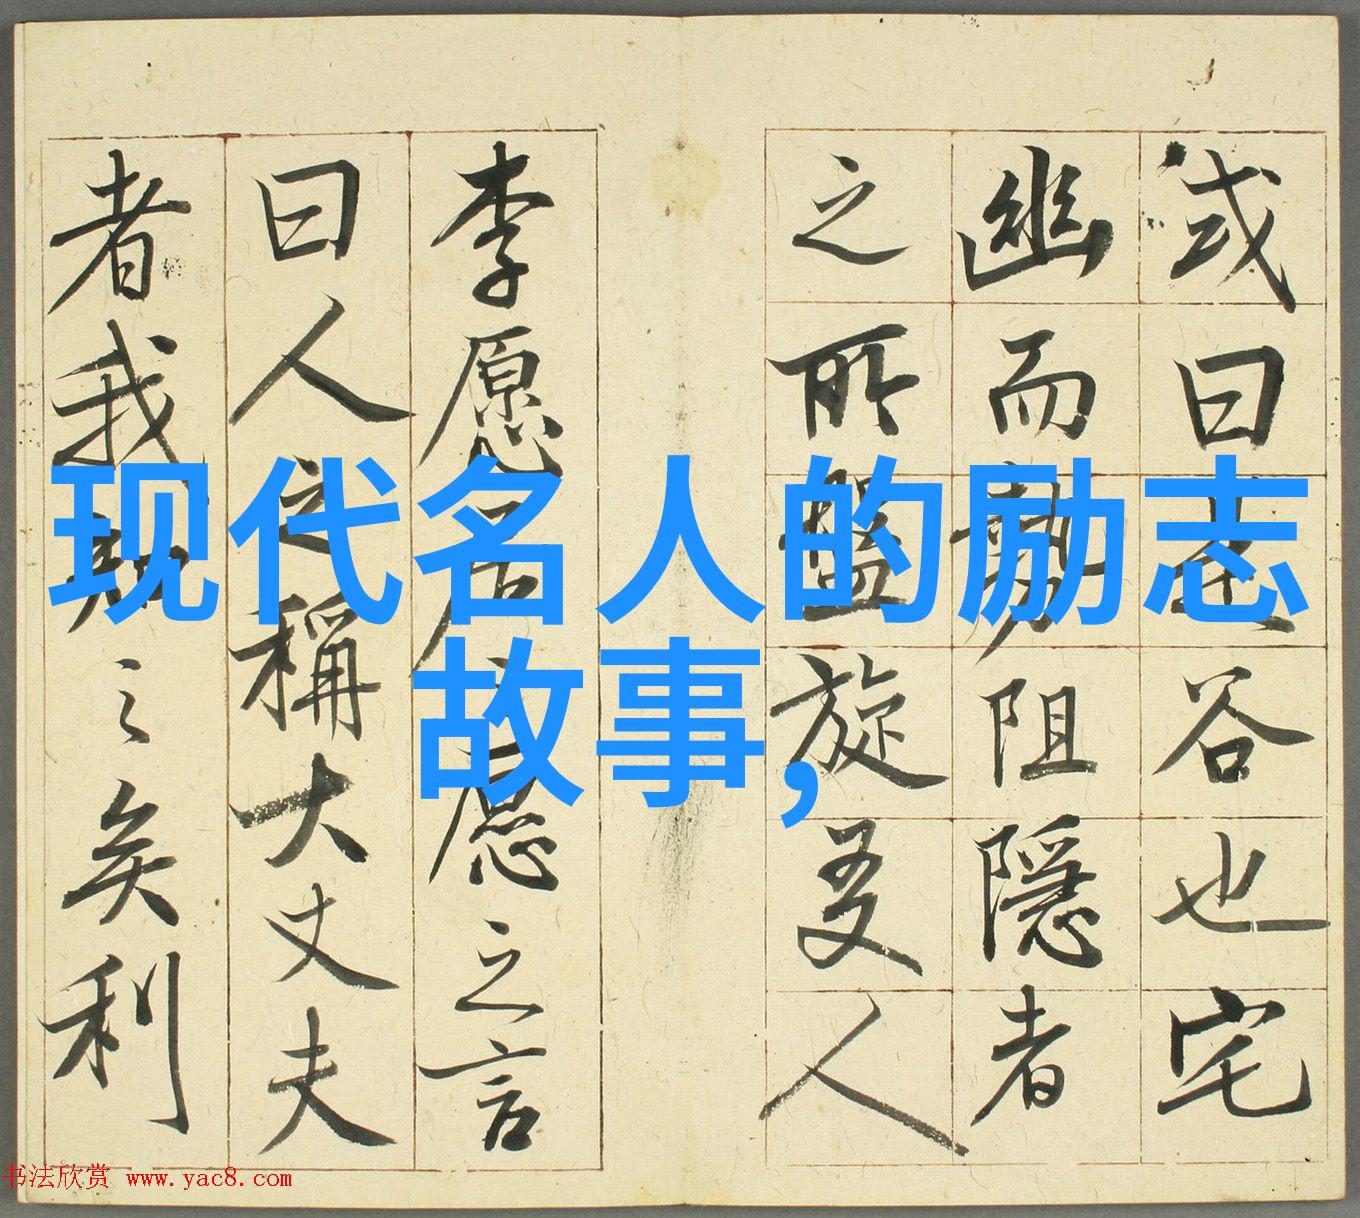 现代名人的励志
故事,
或曰是谷也宅
幽而勢阻隱者
之所盤旋友人
李愿居之愿之言
曰人之稱大丈夫
者我知之矣利
书法欣赏 www.yac8.com